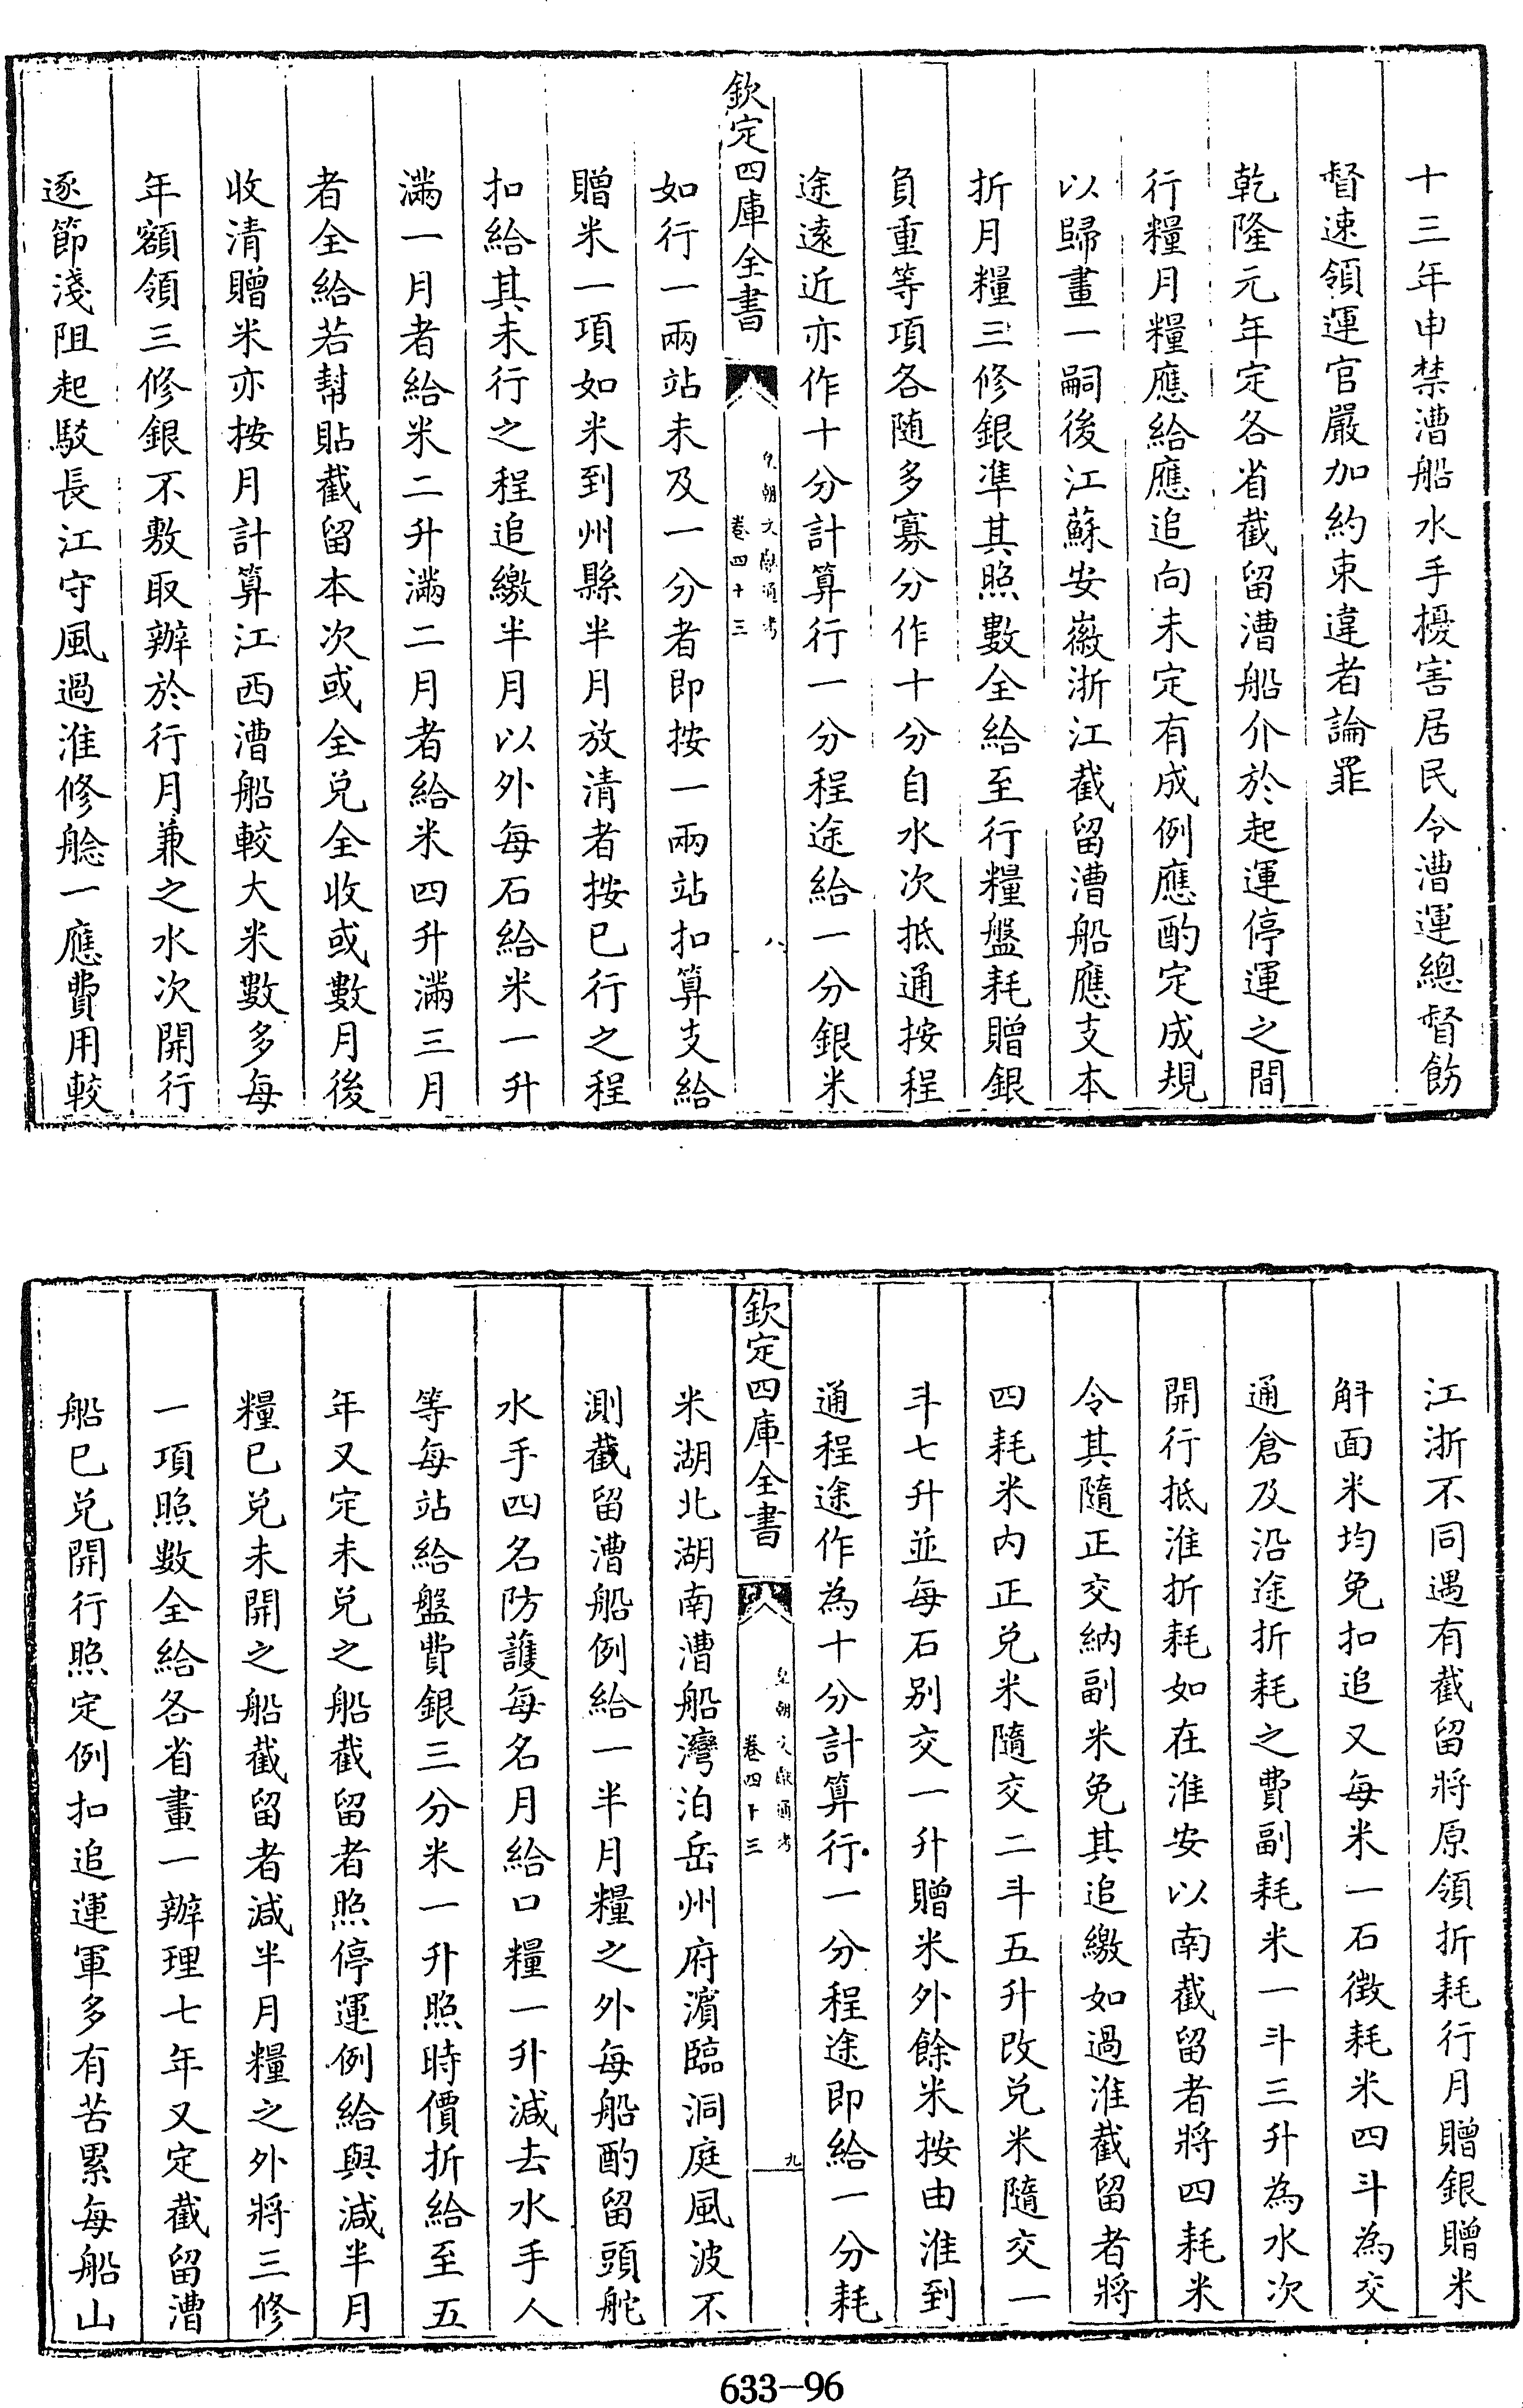 十三年申禁漕船水手擾害居民令漕運總督飭
督速領運官嚴加約束違者論罪
乾隆元年定各省截留漕船介於起運停運之間
行糧月糧應給應追向未定有成例應酌定成規
以歸畫一嗣後江蘇安徽浙江截留漕船應支本
折月糧三修銀準其照數全給至行糧盤耗贈銀
負重等項各隨多寡分作十分自水次抵通按程
途遠近亦作十分計算行一分程途給一分銀米
欽定四庫全書
皇朝文獻通考
卷四十三
八
如行一兩站未及一分者即按一兩站扣算支給
贈米一項如米到州縣半月放清者按已行之程
扣給其未行之程追繳半月以外每石給米一升
滿一月者給米二升滿二月者給米四升滿三月
者全給若幫貼截留本次或全兌全收或數月後
收清贈米亦按月計算江西漕船較大米數多每
年額領三修銀不敷取辦於行月兼之水次開行
逐節淺阻起駁長江守風過淮修艌一應費用較
江浙不同遇有截留將原領折耗行月贈銀贈米
斛面米均免扣追又每米一石徵耗米四斗為交
通倉及沿途折耗之費副耗米一斗三升為水次
開行抵淮折耗如在淮安以南截留者將四耗米
令其隨正交納副米免其追繳如過淮截留者將
四耗米內正兌米隨交二斗五升改兌米隨交一
斗七升並每石別交一升贈米外餘米按由淮到
通程途作為十分計算行一分程途即給一分耗
欽定四庫全書
皇朝文獻通考
卷四十三
九
米湖北湖南漕船灣泊岳州府濱臨洞庭風波不
測截留漕船例給一半月糧之外每船酌留頭舵
水手四名防護每名月給口糧一升減去水手人
等每站給盤費銀三分米一升照時價折給至五
年又定未兌之船截留者照停運例給與減半月
糧已兌未開之船截留者減半月糧之外將三修
一項照數全給各省畫一辦理七年又定截留漕
船已兌開行照定例扣追運軍多有苦累每船山
633-96